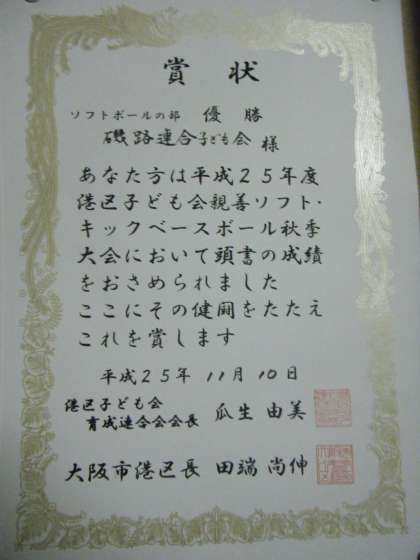 賞状
ソフトボールの部 優勝
磯路連合子ども会 様
あなた方は平成25年度
港区子ども会親善ソフト・
キックベースボール秋季
大会において頭書の成績
をおさめられました
ここにその健闘をたたえ
これを賞します
平成25年 11月 10日
港区子ども会
育成連合会会長 瓜生 由美
大阪市港区長 田端 尚伸